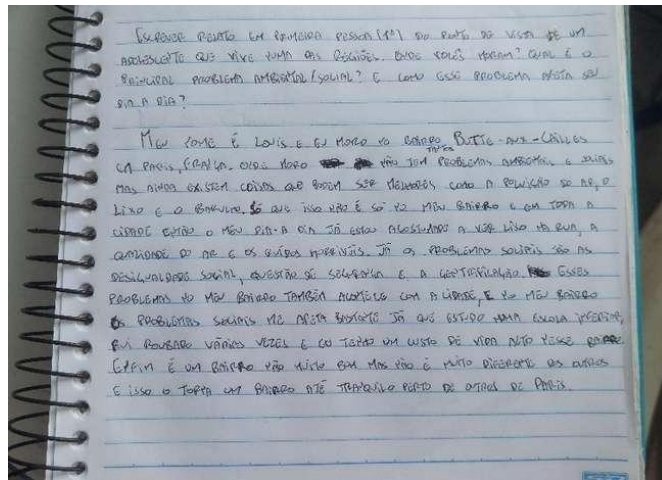 Escrever relato em primeira pessoa (1ª) do ponto de vista de um
adolescente que vive numa das regiões. Onde vocês moram? Qual é o
principal problema ambiental/social? E como esse problema afeta seu
dia a dia?
Meu nome é Louis e eu moro no bairro Butte-aux-Cailles
em Paris, França. Onde moro não tem tantos problemas ambientais e sociais
mas ainda existem coisas que podem ser melhores como a poluição do ar, o
lixo e o barulho. Só que isso não é só no meu bairro e em toda a
cidade então o meu dia-a dia já estou acostumado a ver lixo na rua, a
qualidade do ar e os ruídos horríveis. Já os problemas sociais são as
desigualdade social, questão de segurança e a gentrificação. Esses
problemas no meu bairro também acontece com a cidade, E no meu bairro
os problemas sociais me afeta bastante já que estudo numa escola inferior,
fui roubado várias vezes e eu tenho um custo de vida alto nesse bairro.
Enfim é um bairro não muito bom mas não é muito diferente dos outros
e isso o torna um bairro até tranquilo perto de outros de Paris.